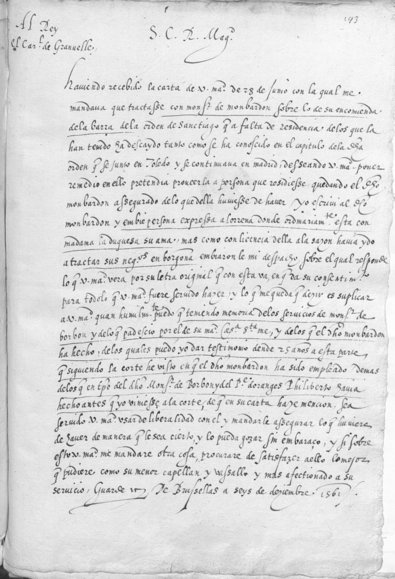 193
Al Rey
El Car.l de Granuelle.
S. C. R. Mag.d
Hauiendo recebido la carta de v. ma.d de 28 de Junio con la qual me
mandaua que tractasse con mons.r de monbardon sobre lo de su encomienda
de la barra de la orden de Sanctiago q a falta de residencia delos que la
han tenido ha descaydo tanto como se ha conoscido en el capitulo de la dha
orden q se junto en Toledo y se continuaua en madrid; desseando v. ma.d poner
remedio en ello pretendia proueerla a persona que residiesse quedando el dho
monbardon assegurado de lo que della huuiesse de hauer yo escriui al dho
monbardon y embie persona expressa a lorena donde ordinariam.te esta con
madama la duquesa su ama. mas como con licencia della a la sazon hauia ydo
a tractar sus neg.os en borgoña embiaron le mi despacho sobre el qual responde
lo q v. ma.d vera por su letra original q con esta va, en q da su consentim.to
para todo lo q v. ma.d fuere seruido hazer; y lo q me queda q dezir es suplicar
a v. ma.d quan humilm.te puedo q teniendo memoria delos seruicios de mons.r de
borbon y delo q padescio por el de su ma.d y delos q el dho monbardon
ha hecho, delos quales puedo yo dar testimonio dende 25 años a esta parte,
q siguiendo la corte he visto en q el dho monbardon ha sido empleado demas
delos q en tpo del dho Mons.r de Borbon y del P.e doranges Philiberto hauia
hecho antes q yo viniesse a la corte, de q en su carta haze mencion, sea
seruido v. ma.d vsar de liberalidad con el y mandarle assegurar lo q huuiere
de hauer de manera q le sea cierto, y lo pueda gozar sin embaraço, y si sobre
esto v. ma.d me mandare otra cosa, procurare de satisfazer a ello lo mejor
q pudiere como su menor capellan y vassallo y mas afectionado a su
seruicio, Guarde etc. De Brussellas a seys de deziembre. 1561